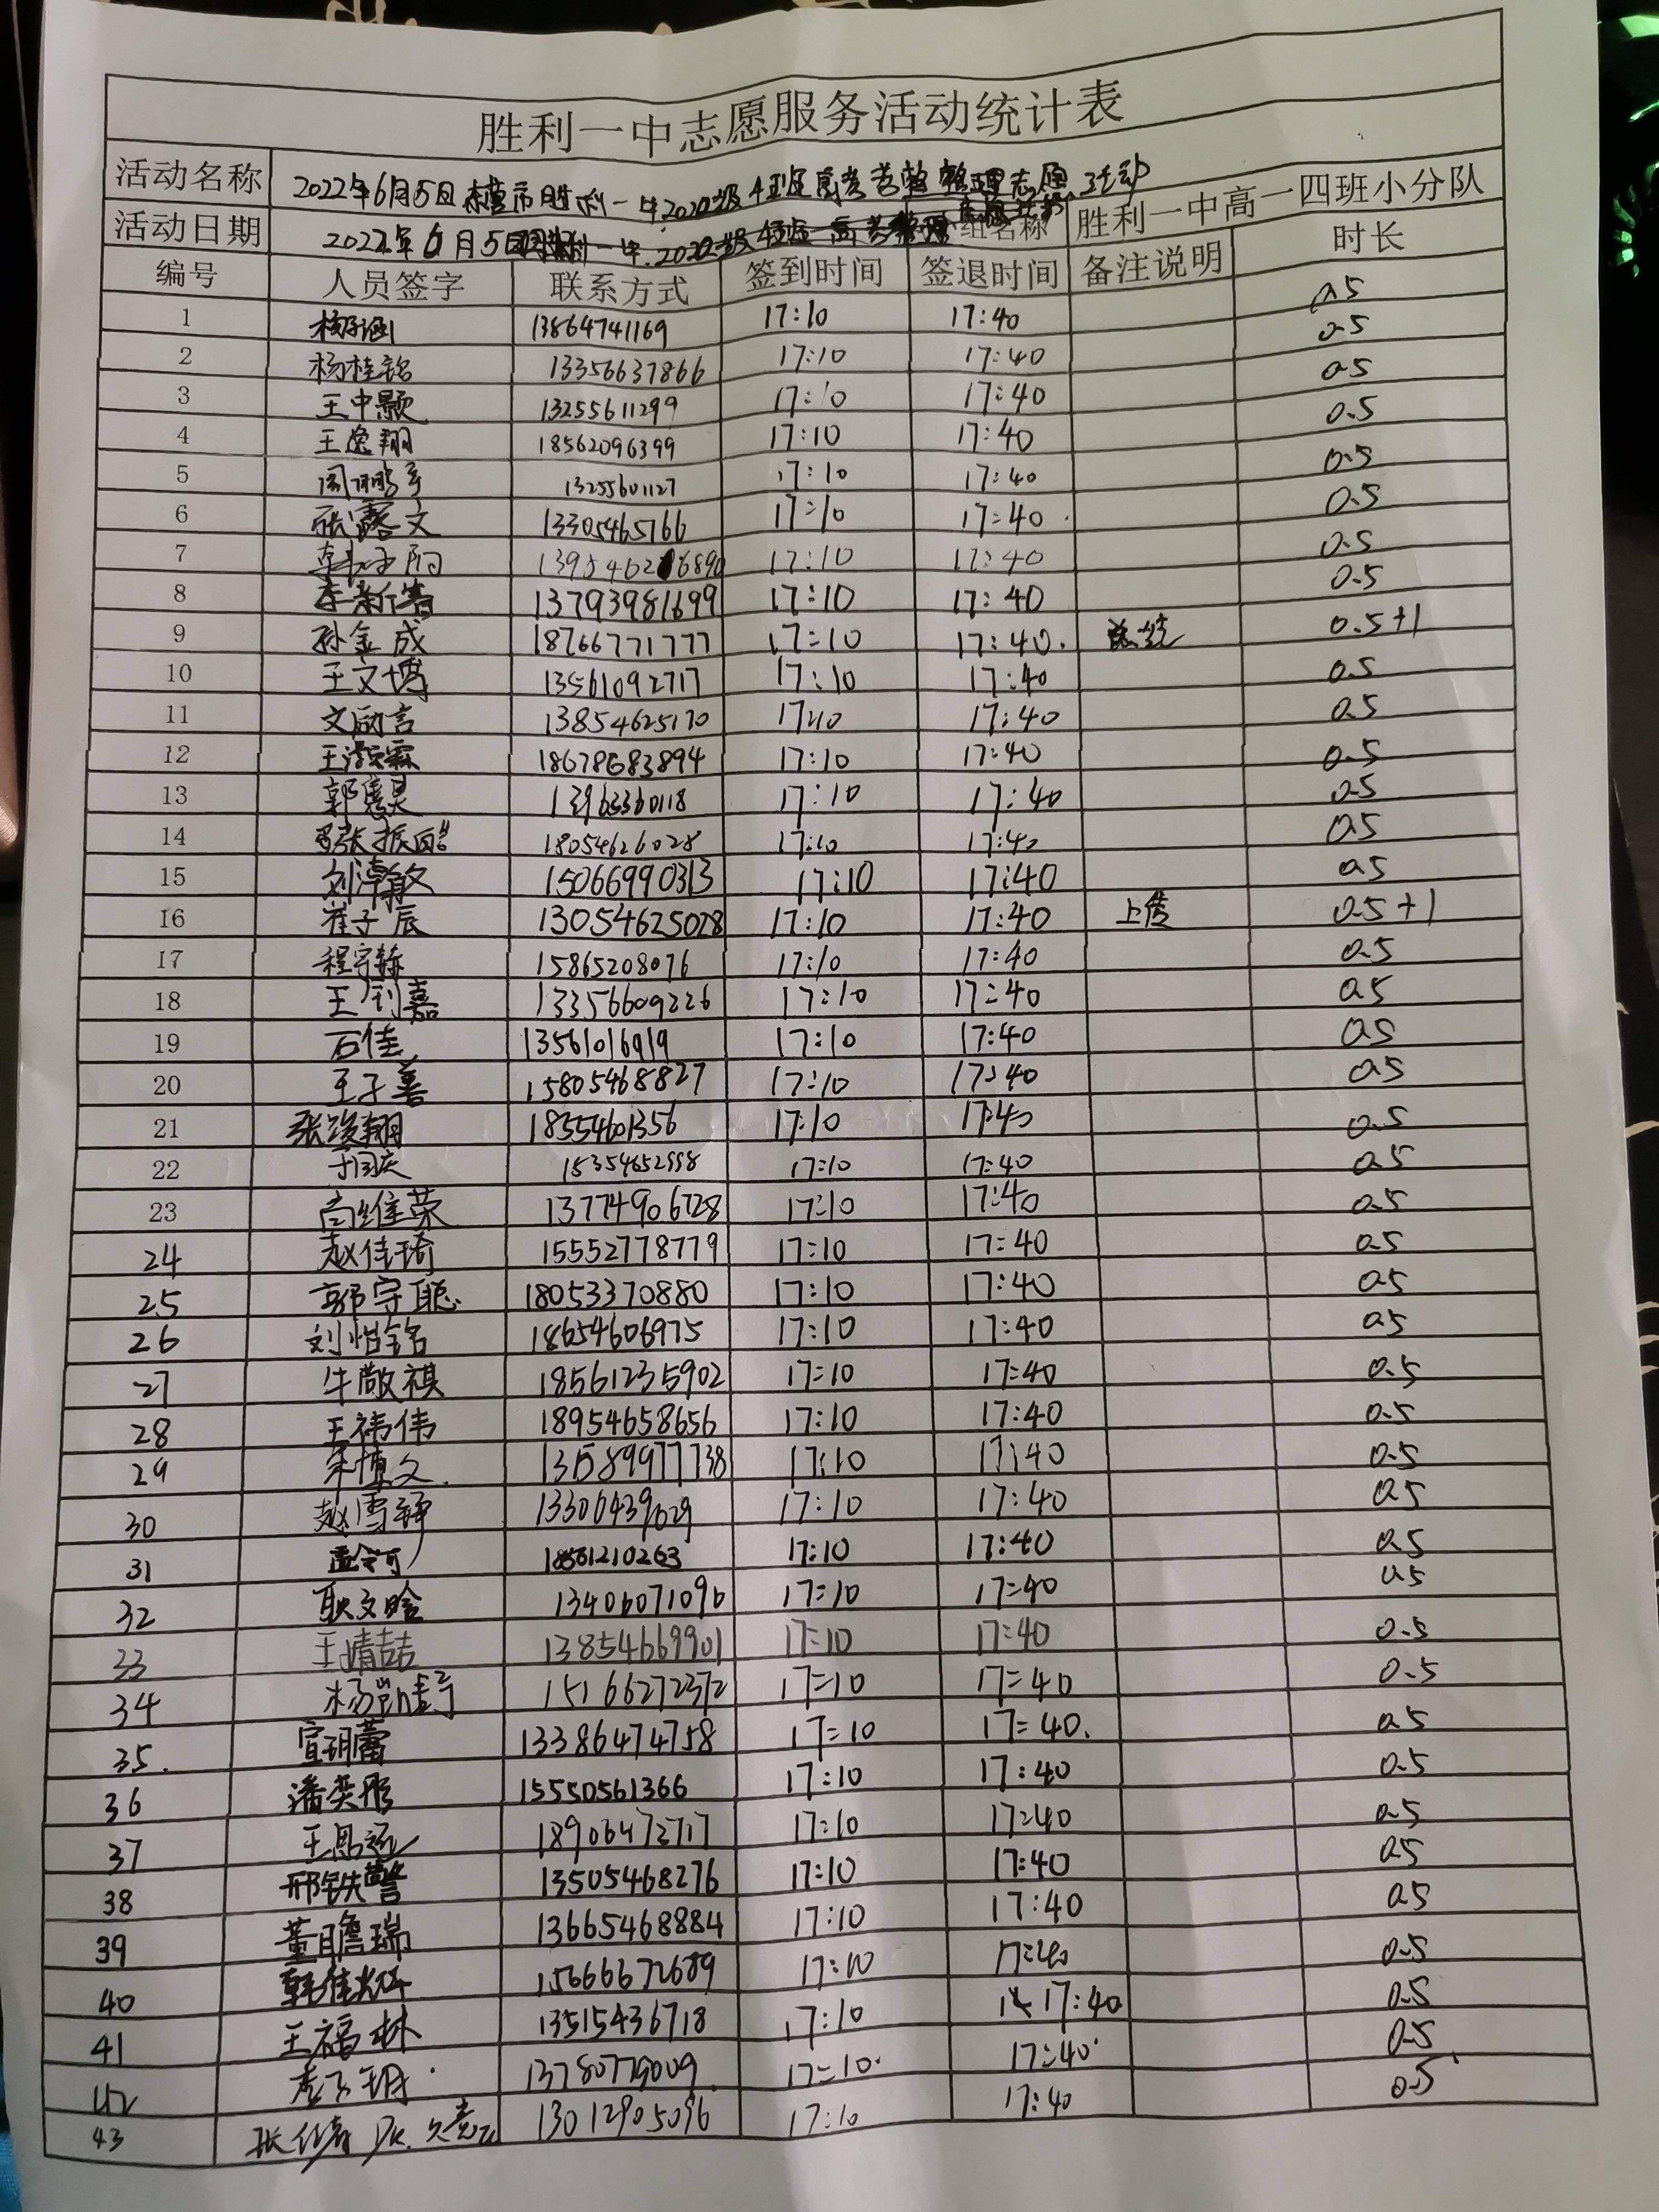 胜利一中志愿服务活动统计表
活动名称 2022年6月5日东营市胜利一中2020级4班高考考整理志愿活动
活动日期 2022年6月5日 组名称 胜利一中高一四班小分队
编号 人员签字 联系方式 签到时间 签退时间 备注说明 时长
1 13864741169 17:10 17:40 0.5
2 杨桂铭 13356637866 17:10 17:40 0.5
3 王中颢 13255611299 17:10 17:40 0.5
4 王逸翔 18562096399 17:10 17:40 0.5
5 13255601127 17:10 17:40 0.5
6 张露文 13305465766 17:10 17:40 0.5
7 17:10 17:40 0.5
8 李新睿 13793981699 17:10 17:40 0.5
9 孙金成 18766771777 17:10 17:40 总结 0.5+1
10 王文博 13561092717 17:10 17:40 0.5
11 文励言 13854625170 17:10 17:40 0.5
12 17:10 17:40 0.5
13 13963360118 17:10 17:40 0.5
14 18054626028 17:10 17:40 0.5
15 刘潇敏 15066990313 17:10 17:40 0.5
16 崔子辰 13054625028 17:10 17:40 上传 0.5+1
17 程宇栋 15865208076 17:10 17:40 0.5
18 王钊嘉 13356609226 17:10 17:40 0.5
19 石佳 13561016919 17:10 17:40 0.5
20 王子善 15805468827 17:10 17:40 0.5
21 张竣翔 18554601356 17:10 17:40 0.5
22 于国庆 15354652998 17:10 17:40 0.5
23 高维荣 13774906728 17:10 17:40 0.5
24 赵佳琦 15552778779 17:10 17:40 0.5
25 郭宇聪 18053370880 17:10 17:40 0.5
26 刘恺铭 18654606975 17:10 17:40 0.5
27 牛敬祺 18561235902 17:10 17:40 0.5
28 王祎伟 18954658656 17:10 17:40 0.5
29 17:10 17:40 0.5
30 赵雪铮 13306439629 17:10 17:40 0.5
31 孟令可 18561210263 17:10 17:40 0.5
32 耿文晗 13406071096 17:10 17:40 0.5
33 王婧喆 13854669901 17:10 17:40 0.5
34 杨凯婷 15166272372 17:10 17:40 0.5
35. 宣玥蕾 13386474758 17:10 17:40. 0.5
36 潘奕彤 15550561366 17:10 17:40 0.5
37 王思远 18906472717 17:10 17:40 0.5
38 邢轶馨 13505468276 17:10 17:40 0.5
39 董瞻瑞 13665468884 17:10 17:40 0.5
40 15666672689 17:10 17:40 0.5
41 王福林 13515436718 17:10 17:40 0.5
42 13780779009 17:10 17:40 0.5
43 13012905096 17:10 17:40 0.5